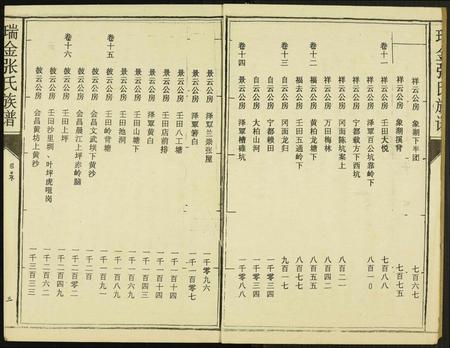 瑞金张氏族谱
祥云公房 象湖下半团 七百六七
祥云公房 象湖溪背 七百七五
卷十一 祥云公房 壬田大悦 八百
祥云公房 泽覃百公坑靠岭下 八百一〇
祥云公房 宁都载方下西坑
祥云公房 冈面陈坑案上 八百二一
祥云公房 万田梅林 八百四二
卷十二 福云公房 黄柏龙塘下 八百五五
福去公房 壬田五通岭下 八百七四
卷十三 自云公房 冈面龙归 九百一七
自云公房 宁都赖田 一千零三四
自云公房 大柏山河 一千零三四
卷十四 景云公房 泽覃槽碓坑 一千零八八
景云公房 泽覃兰崇张屋 一千零九六
景云公房 泽覃箬白 一千一百零七
景云公房 壬田八工塘 一千一百十四
景云公房 壬田店前排 一千一百十四
景云公房 泽覃黄白 一千一百四三
景云公房 壬田山塘下 一千一百五七
景云公房 壬田池河 一千一百八九
卷十五 敛云公房 壬田岭背塘 一千一百九八
敛云公房 会昌文武坝下黄沙 一千二百
敛云公房 会昌晨江上坪赤岭脑 一千二百零二
卷十六 敛云公房 壬田上坪 一千二百四九
敛云公房 壬田沙里埧、叶坪虎咀岗 一千二百六二
敛云公房 会昌黄坊上黄沙 一千三百三三
瑞金张氏族谱
三